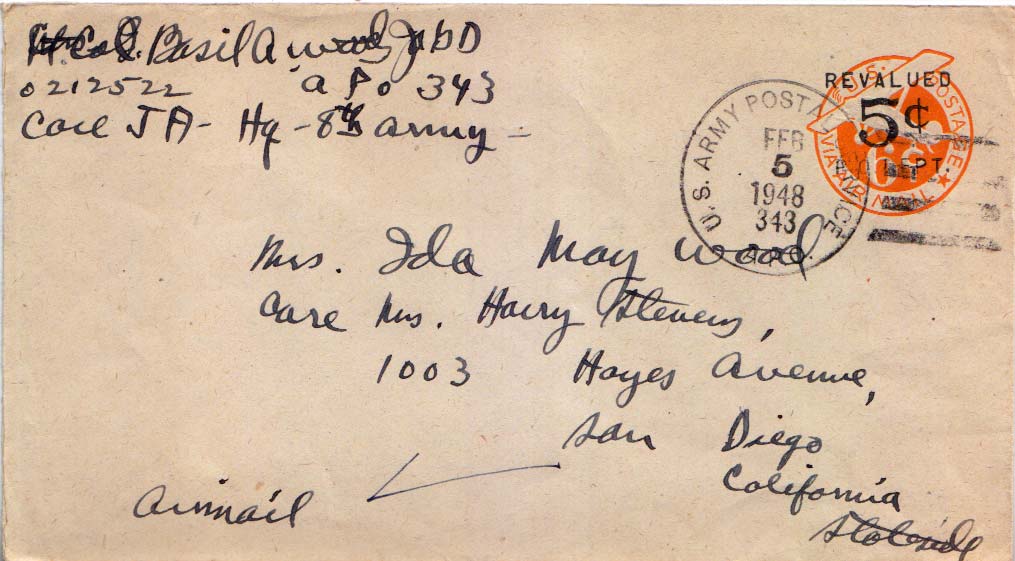 Lt. Col. Basil A Wood JAGD
0212522 A P O 343
Care JA - Hq - 8th Army -
U.S. POSTAGE.
VIA AIR MAIL
6¢
REVALUED
5¢
P. O. DEPT.
U.S. ARMY POSTAL SERVICE
FEB
5
1948
343
A.P.O.
Mrs. Ida May Wood
Care Mrs. Harry Stevens,
1003 Hayes Avenue,
San Diego
California
Stateside
Airmail